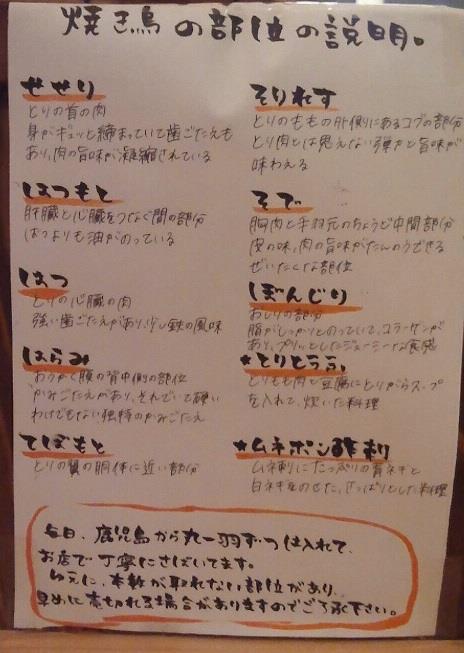 焼き鳥の部位の説明。
せせり
とりの首の肉
身がギュッと締まっていて歯ごたえも
あり、肉の旨味が凝縮されている
はつもと
肝臓と心臓をつなぐ間の部分
はつよりも油がのっている
はつ
とりの心臓の肉
強い歯ごたえがあり、少し鉄の風味
はらみ
おうかく膜の背中側の部位
かみごたえがあり、それでいて硬い
わけでもない独特のかみごたえ
てばもと
とりの翼の胴体に近い部分
そりれす
とりのももの付け側にあるコブの部分
とり肉とは思えない弾力と旨味が
味わえる
そで
胸肉と手羽元のちょうど中間部分
皮の味、肉の旨味がたんのうできる
ぜいたくな部位
ぼんじり
おしりの部分
脂がしっかりとのっていて、コラーゲンが
あり、プリッとしたジューシーな食感
★とりとうふ
とりもも肉と豆腐にとりがらスープ
を入れて、炊いた料理
★ムネポン酢刺
ムネ刺にたっぷりの青ネギと
白ネギをのせた、さっぱりとした料理
毎日、鹿児島から丸一羽ずつ仕入れて、
お店で丁寧にさばいてます。
ゆえに、本数が取れない部位があり、
早めに売切れる場合がありますのでご了承下さい。